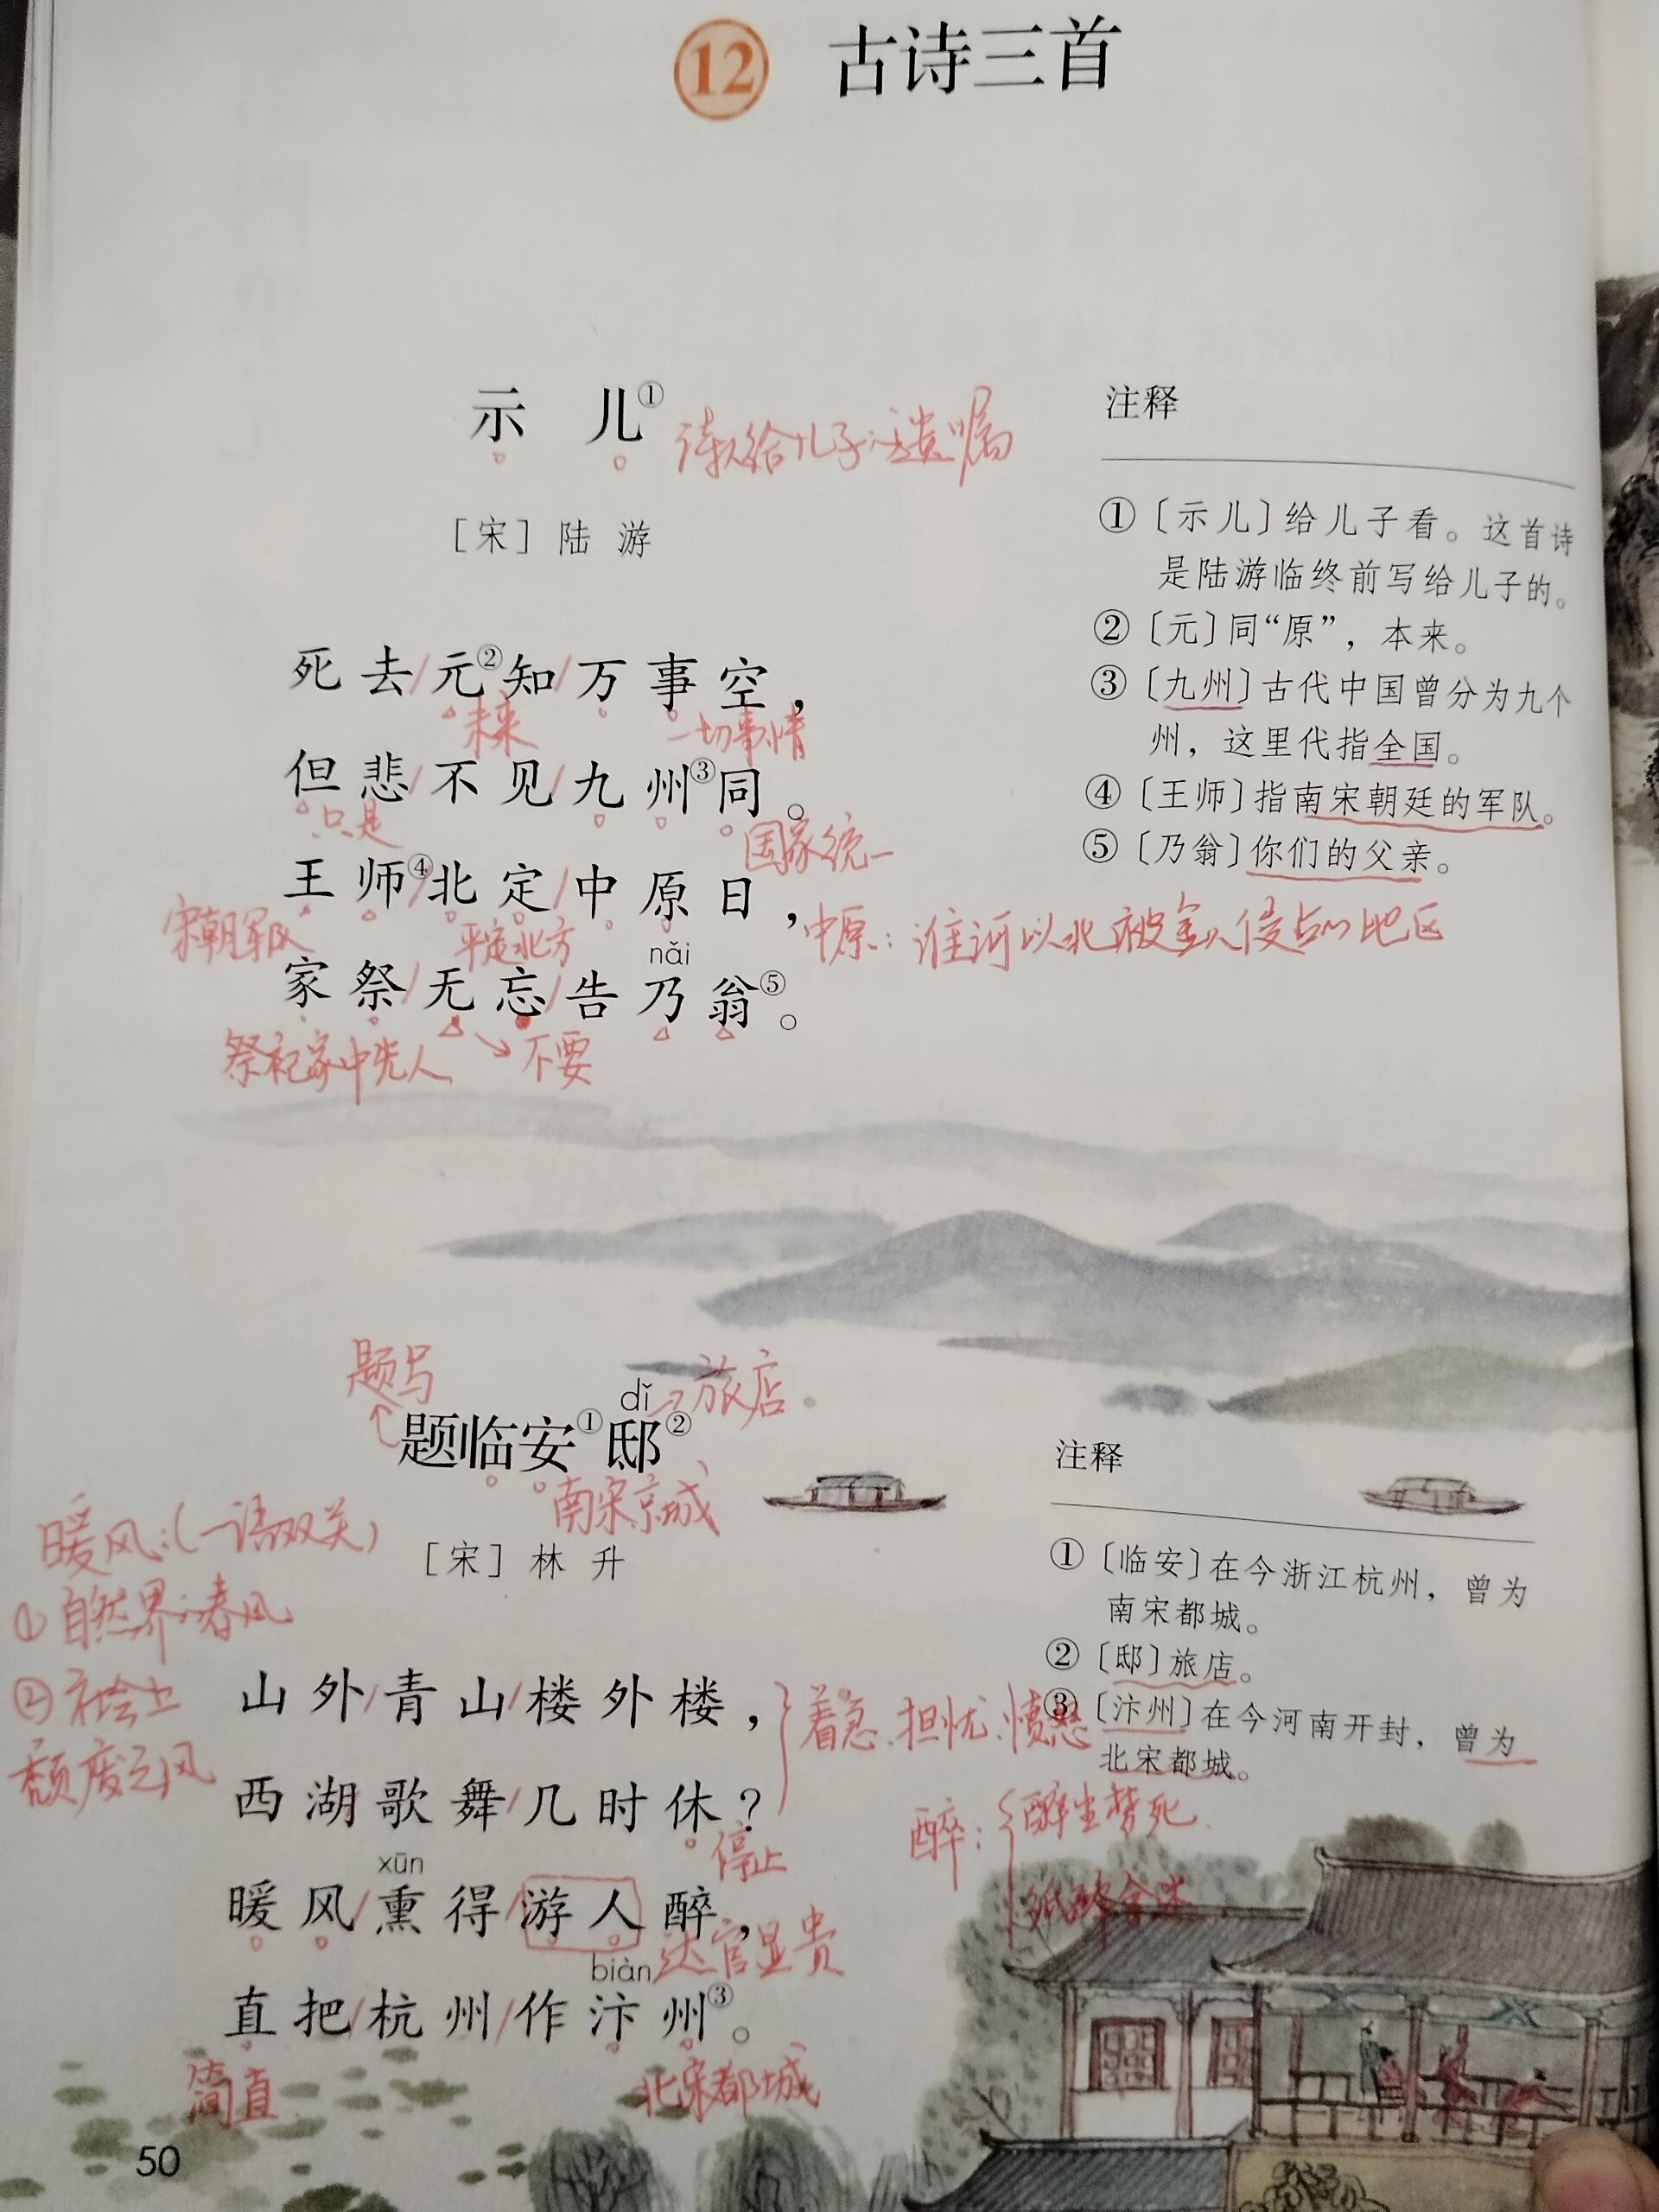 12 古诗三首
示 儿①
诗人给儿子的遗嘱
[宋] 陆 游
死去/元②知/万事空，
本来 一切事情
但悲/不见/九州③同。
只是 国家统一
王师④/北定/中原日，
宋朝军队 平定北方 中原：淮河以北被金人侵占的地区
nǎi
家祭/无忘/告乃翁⑤。
祭祀家中先人 不要
注释
①〔示儿〕给儿子看。这首诗
是陆游临终前写给儿子的。
②〔元〕同“原”，本来。
③〔九州〕古代中国曾分为九个
州，这里代指全国。
④〔王师〕指南宋朝廷的军队。
⑤〔乃翁〕你们的父亲。
题写
dǐ 旅店。
题临安①邸②
南宋京城
[宋] 林 升
暖风：（一语双关）
①自然界的春风
②社会上
颓废之风
山外/青山/楼外楼，
着急、担忧、愤怒
西湖歌舞/几时休？
停止
xūn
暖风/熏得/游人醉，
达官显贵
醉：
醉生梦死
纸醉金迷
biàn
直把/杭州/作汴州③。
简直 北宋都城
注释
①〔临安〕在今浙江杭州，曾为
南宋都城。
②〔邸〕旅店。
③〔汴州〕在今河南开封，曾为
北宋都城。
50